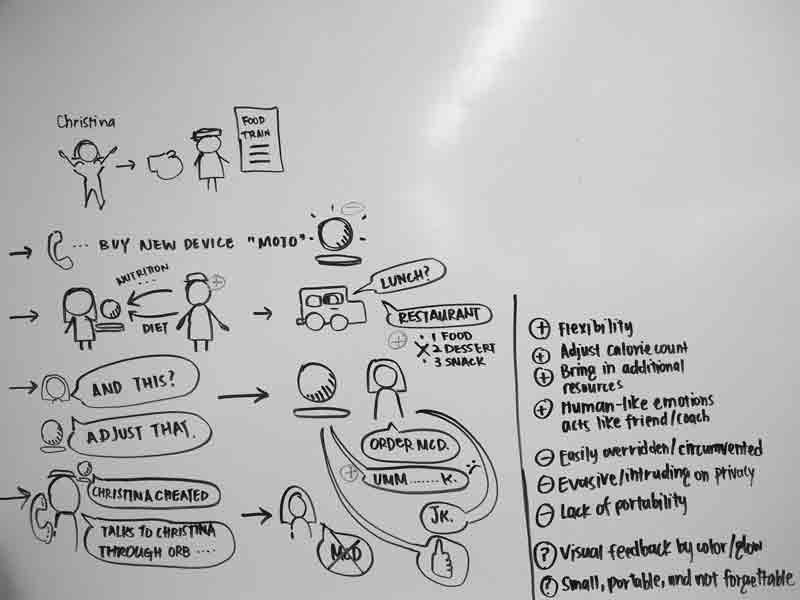 Christina
FOOD
TRAIN
... BUY NEW DEVICE "MOJO"
NUTRITION
...
DIET
LUNCH?
RESTAURANT
1 FOOD
2 DESSERT
3 SNACK
AND THIS?
ADJUST THAT.
ORDER MCD.
UMM.......K.
JK.
CHRISTINA CREATED
TALKS TO CHRISTINA
THROUGH ORB ....
McD
+ Flexibility
+ Adjust calorie count
+ Bring in additional
resources
+ Human-like emotions
acts like friend/coach
- Easily overridden/circumvented
- Evasive/intruding on privacy
- Lack of portability
? Visual feedback by color/glow
? Small, portable, and not forgettable